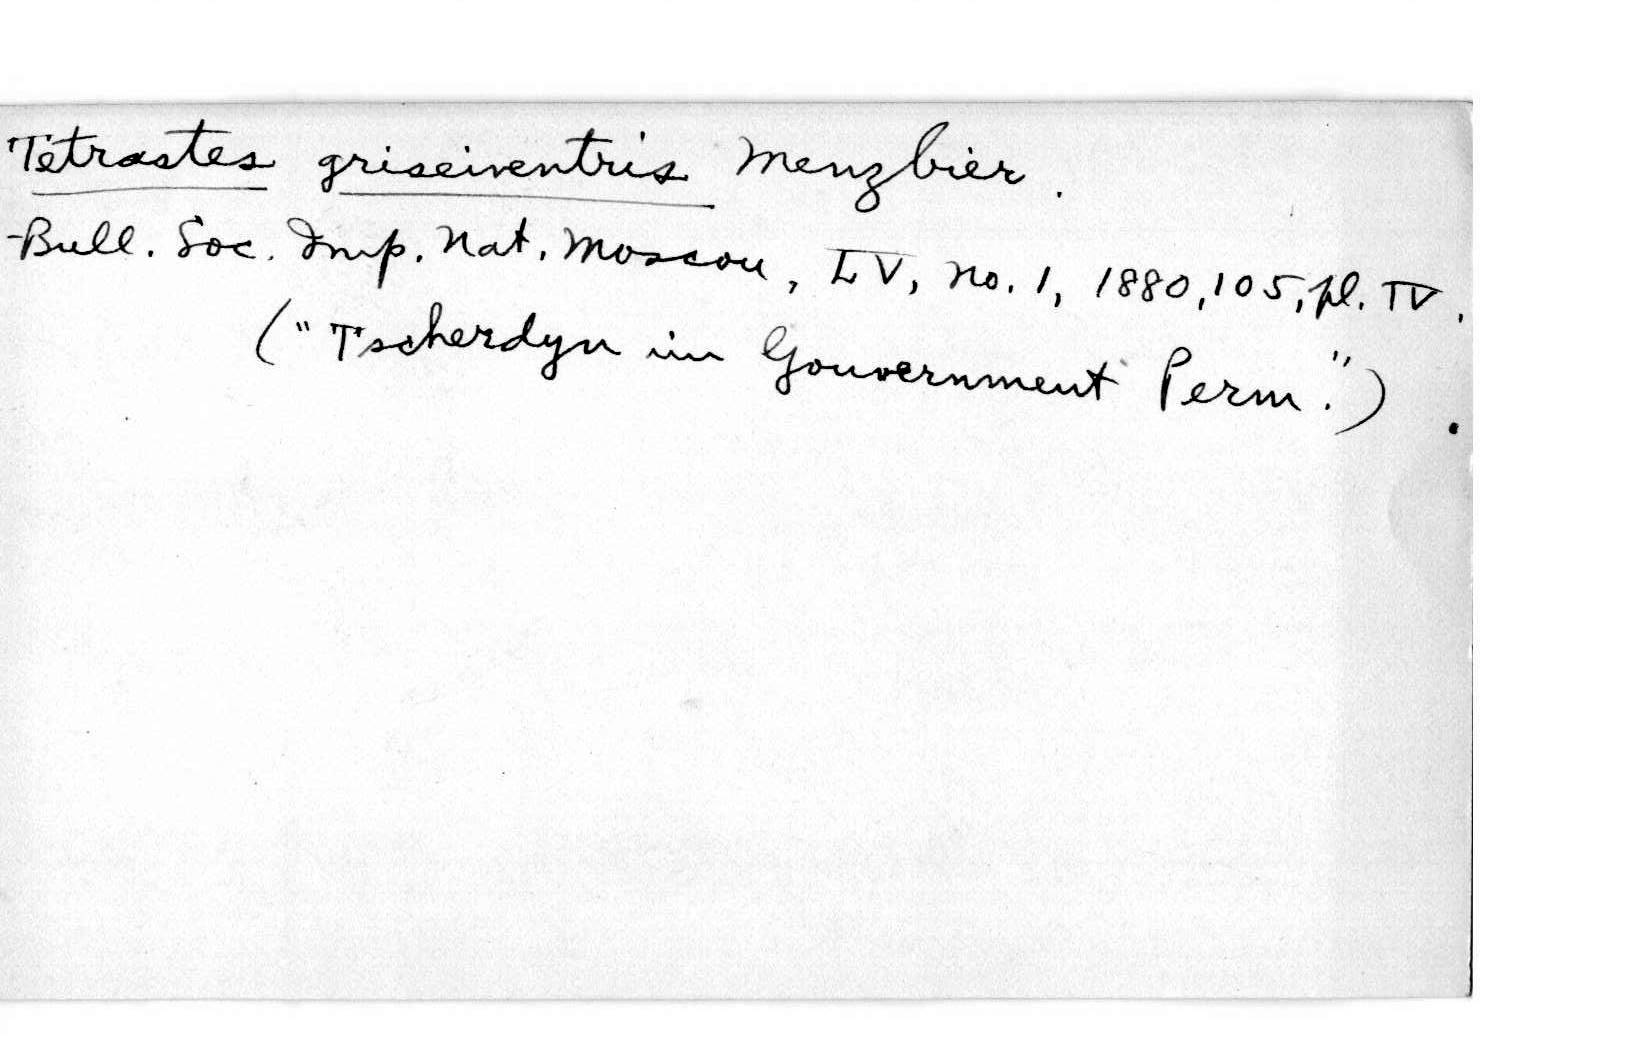 Tetrastes griseiventris Menzbier.
Bull. Soc. Imp. Nat. Moscou, LV, no. 1, 1880, 105, pl. IV.
("Tscherdyn im Gouvernment Perm.").